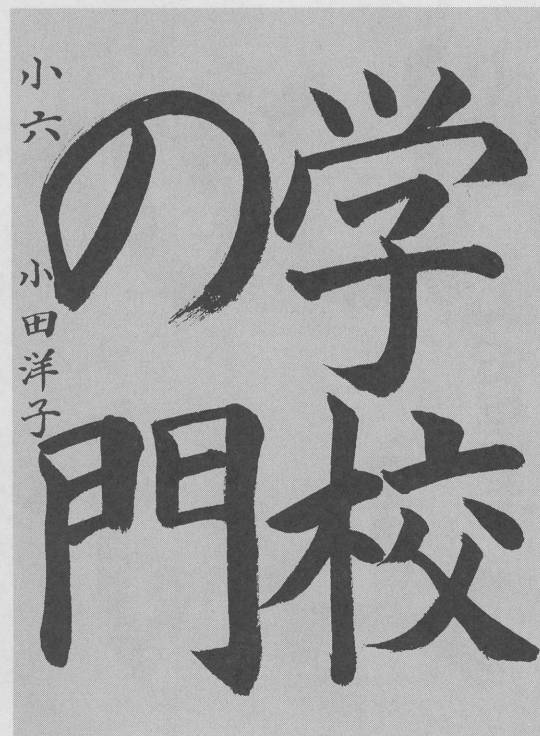 学校
の門
小六 小田洋子